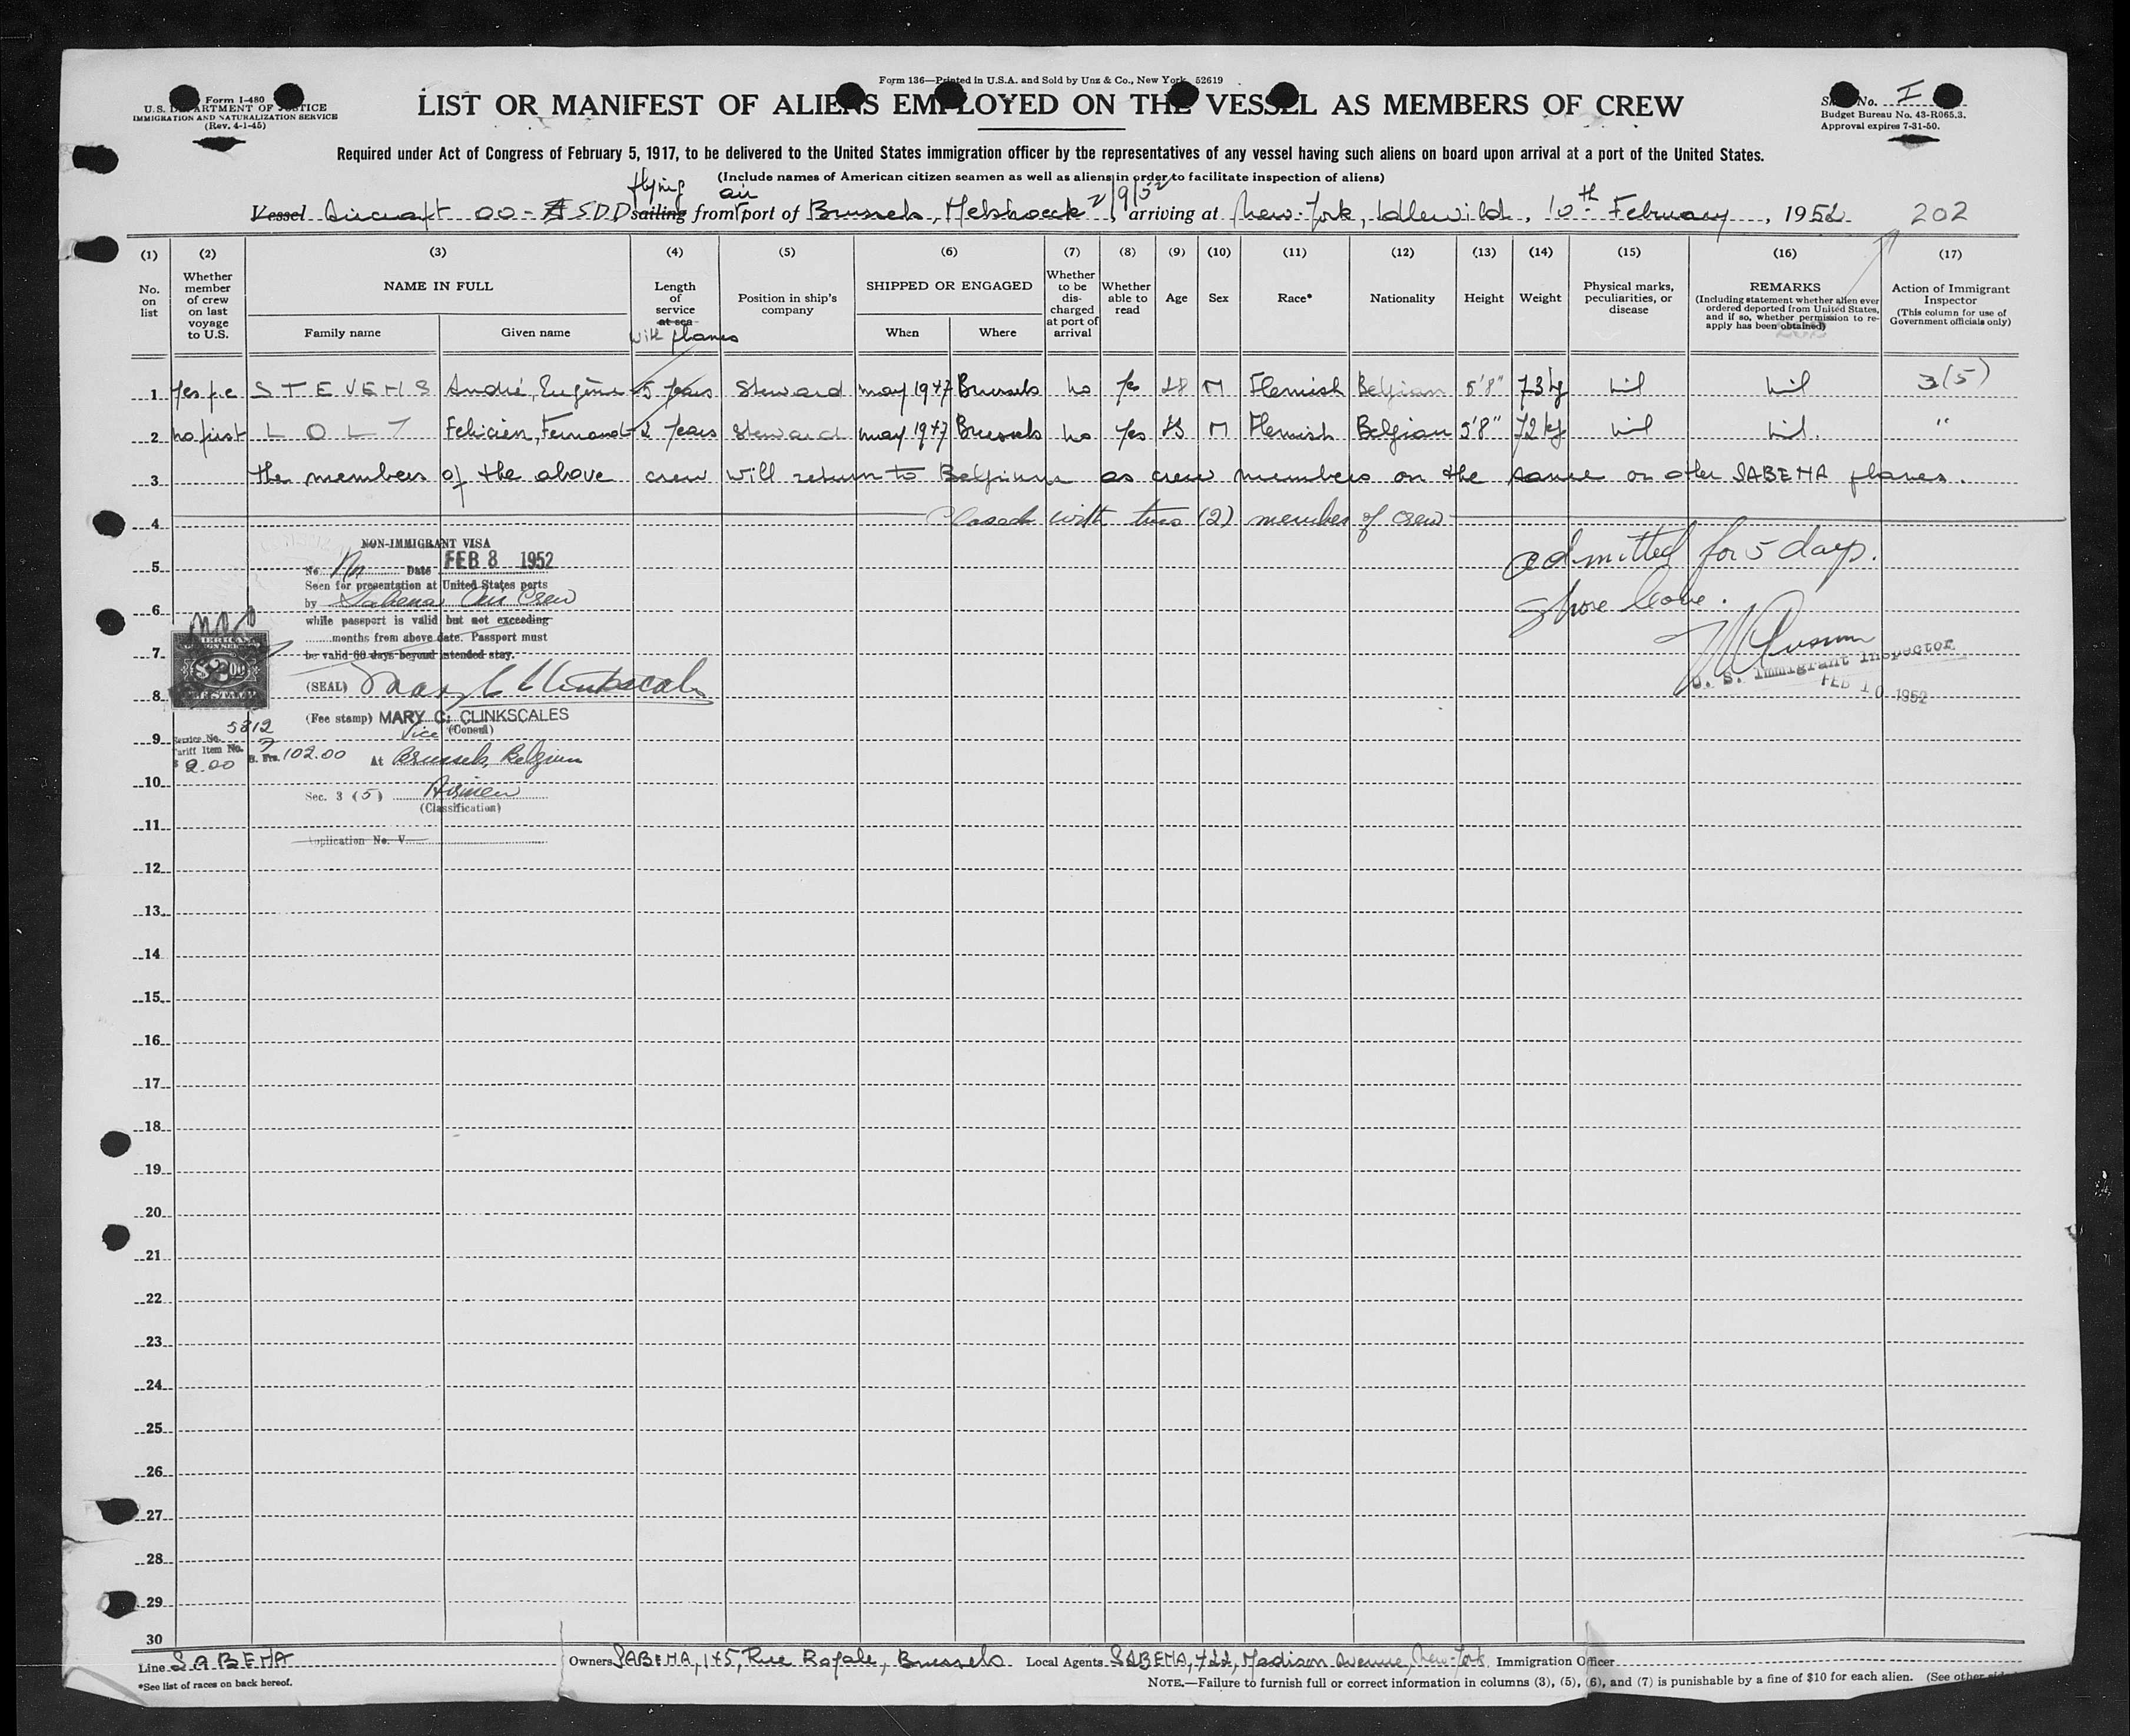 Form 136—Printed in U.S.A. and Sold by Unz & Co., New York 52619
Form I-480
U.S. DEPARTMENT OF JUSTICE
IMMIGRATION AND NATURALIZATION SERVICE
(Rev. 4-1-45)
LIST OR MANIFEST OF ALIENS EMPLOYED ON THE VESSEL AS MEMBERS OF CREW
No. I
Budget Bureau No. 43-R065.3.
Approval expires 7-31-50.
Required under Act of Congress of February 5, 1917, to be delivered to the United States immigration officer by the representatives of any vessel having such aliens on board upon arrival at a port of the United States.
(Include names of American citizen seamen as well as aliens in order to facilitate inspection of aliens)
flying air 2/9/52
Vessel Aircraft OO-SDD sailing from port of Brussels, Melsbroeck, arriving at New-York, Idlewild, 10th February, 1952 202
(1) (2) (3) (4) (5) (6) (7) (8) (9) (10) (11) (12) (13) (14) (15) (16) (17)
No. on list
Whether member of crew on last voyage to U.S.
NAME IN FULL
Family name
Given name
Length of service at sea
with planes
Position in ship's company
SHIPPED OR ENGAGED
When
Where
Whether to be discharged at port of arrival
Whether able to read
Age
Sex
Race*
Nationality
Height
Weight
Physical marks, peculiarities, or disease
REMARKS
(Including statement whether alien ever ordered deported from United States, and if so, whether permission to reapply has been obtained)
Action of Immigrant Inspector
(This column for use of Government officials only)
1 Yes STEVENS André, Eugène 5 Years Steward may 1947 Brussels no Yes 28 M Flemish Belgian 5'8" 73 kg nil nil 3(5)
2 no first LOLT Felicien, Fernand 2 Years Steward may 1947 Brussels no Yes M Flemish Belgian 5'8" 72 kg nil nil. "
3 the members of the above crew will return to Belgium as crew members on the same or other SABENA planes.
4 Closed with two (2) member of crew
admitted for 5 days.
shore leave.
U. S. Immigrant Inspector
FEB 10 1952
NON-IMMIGRANT VISA
No. Date FEB 8 1952
Seen for presentation at United States ports
by Sabena Air Crew
while passport is valid but not exceeding
months from above date. Passport must
be valid 60 days beyond intended stay.
(SEAL) Mary C Clinkscales
(Fee stamp) MARY C. CLINKSCALES
Vice (Consul)
At Brussels, Belgium
Sec. 3 (5) Airmen
(Classification)
Application No. V
$2.00
FEE STAMP
Service No. 5812
Tariff Item No. 7
$ 2.00 B. Frs. 102.00
5
6
7
8
9
10
11
12
13
14
15
16
17
18
19
20
21
22
23
24
25
26
27
28
29
30
Line SABENA Owners SABENA, 145, Rue Royale, Brussels Local Agents SABENA, 422, Madison Avenue, New-York Immigration Officer
*See list of races on back hereof.
NOTE.—Failure to furnish full or correct information in columns (3), (5), (6), and (7) is punishable by a fine of $10 for each alien. (See other